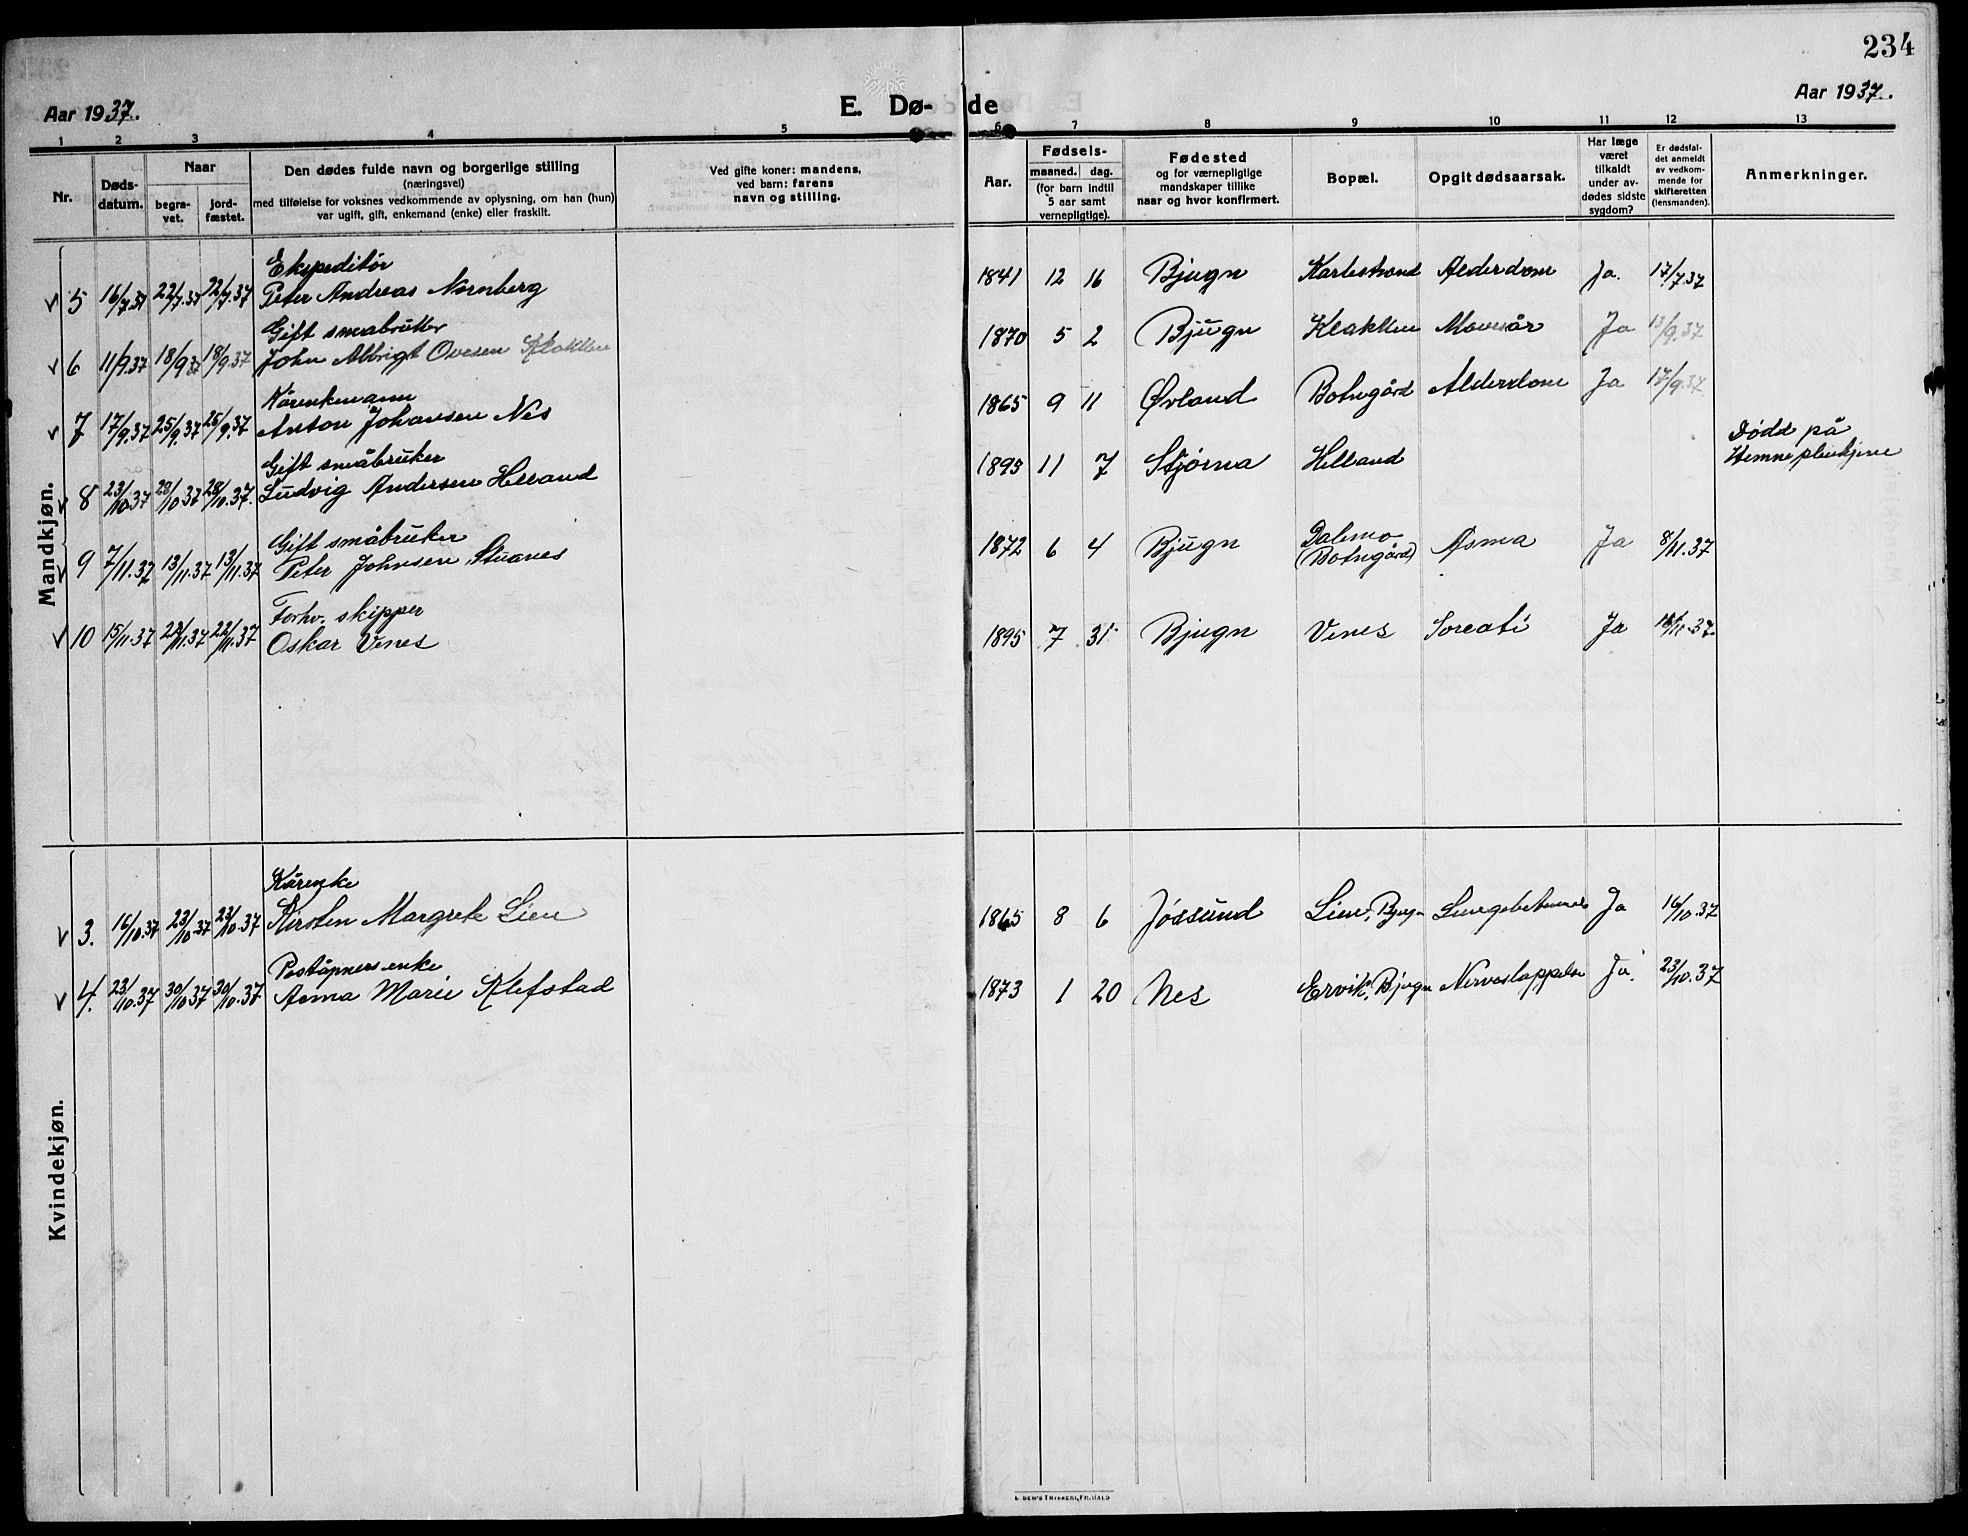 234
Aar 1937.
E. Dø-
de
Aar 1937.
1 2 3 4 5 6 7 8 9 10 11 12 13
Nr.
Døds-
datum.
Naar
begra-
vet.
jord-
fæstet.
Den dødes fulde navn og borgerlige stilling
(næringsvei)
med tilføielse for voksnes vedkommende av oplysning, om han (hun)
var ugift, gift, enkemand (enke) eller fraskilt.
Ved gifte koner: mandens,
ved barn: farens
navn og stilling.
Aar.
Fødsels-
maaned. dag.
(for barn indtil
5 aar samt
vernepligtige).
Fødested
og for værnepligtige
mandskaper tillike
naar og hvor konfirmert.
Bopæl.
Opgit dødsaarsak.
Har læge
været
tilkaldt
under av-
dødes sidste
sygdom?
Er dødsfal-
det anmeldt
av vedkom-
mende for
skifteretten
(lensmanden).
Anmerkninger.
Mandkjøn.
Ekspeditør
5 16/7.37 22/7.37 22/7.37 Peter Andreas Nørnberg 1841 12 16 Bjugn Alderdom Ja. 17/7.37
Gift småbruker
6 11/9.37 18/9.37 18/9.37 John Albrigt Ovesen Klakken 1870 5 2 Bjugn Klakken Ja 13/9.37
Kårenkemann
7 17/9.37 25/9.37 25/9.37 Anton Johansen Nes 1865 9 11 Ørland Botngård Alderdom Ja 17/9.37
Gift småbruker
8 23/10.37 28/10 37 28/10.37. Ludvig Andersen Helland 1895 11 7 Stjørna Helland
Dødd på
Hemne pleiehjem
Gift småbruker
9 7/11.37 13/11.37 13/11.37 Peter Johnsen Stuanes 1872 6 4 Bjugn Dalemo (Botngård) Asma Ja 8/11.37
Forhv. skipper
10 15/11.37 22/11.37 22/11.37 Oskar Vines 1895 7 31 Bjugn Vines Ja 16/11.37.
Kvindekjøn.
Kårenke
3. 16/10.37 23/10.37 23/10.37 Kirsten Margrete Lien 1865 8 6 Jøssund Lien, Bjugn Ja 16/10.37
Poståpners enke
4. 23/10.37 30/10.37 30/10.37 Anna Marie Klefstad 1873 1 20 Nes Ervik, Bjugn Ja. 23/10.37